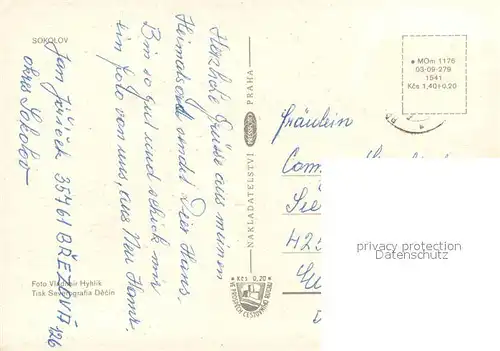 SOKOLOV
Herzliche Grüße aus meinen
Heimatort sendet Dier Hans.
Bin so gut und schick mir
ein foto von uns, aus Neu
Jan Jiříček 35761 BŘEZOVÁ 126
okres Sokolov
Foto Vladimír Hyhlík
Tisk Severografia Děčín
NAKLADATELSTVÍ
PRAHA
* Kčs 0,20 *
VE PROSPĚCH CESTOVNÍHO RUCHU
* MOm 1176
03-09-279
1541
Kčs 1,40+0,20
Fräulein
425
privacy protection
Datenschutz